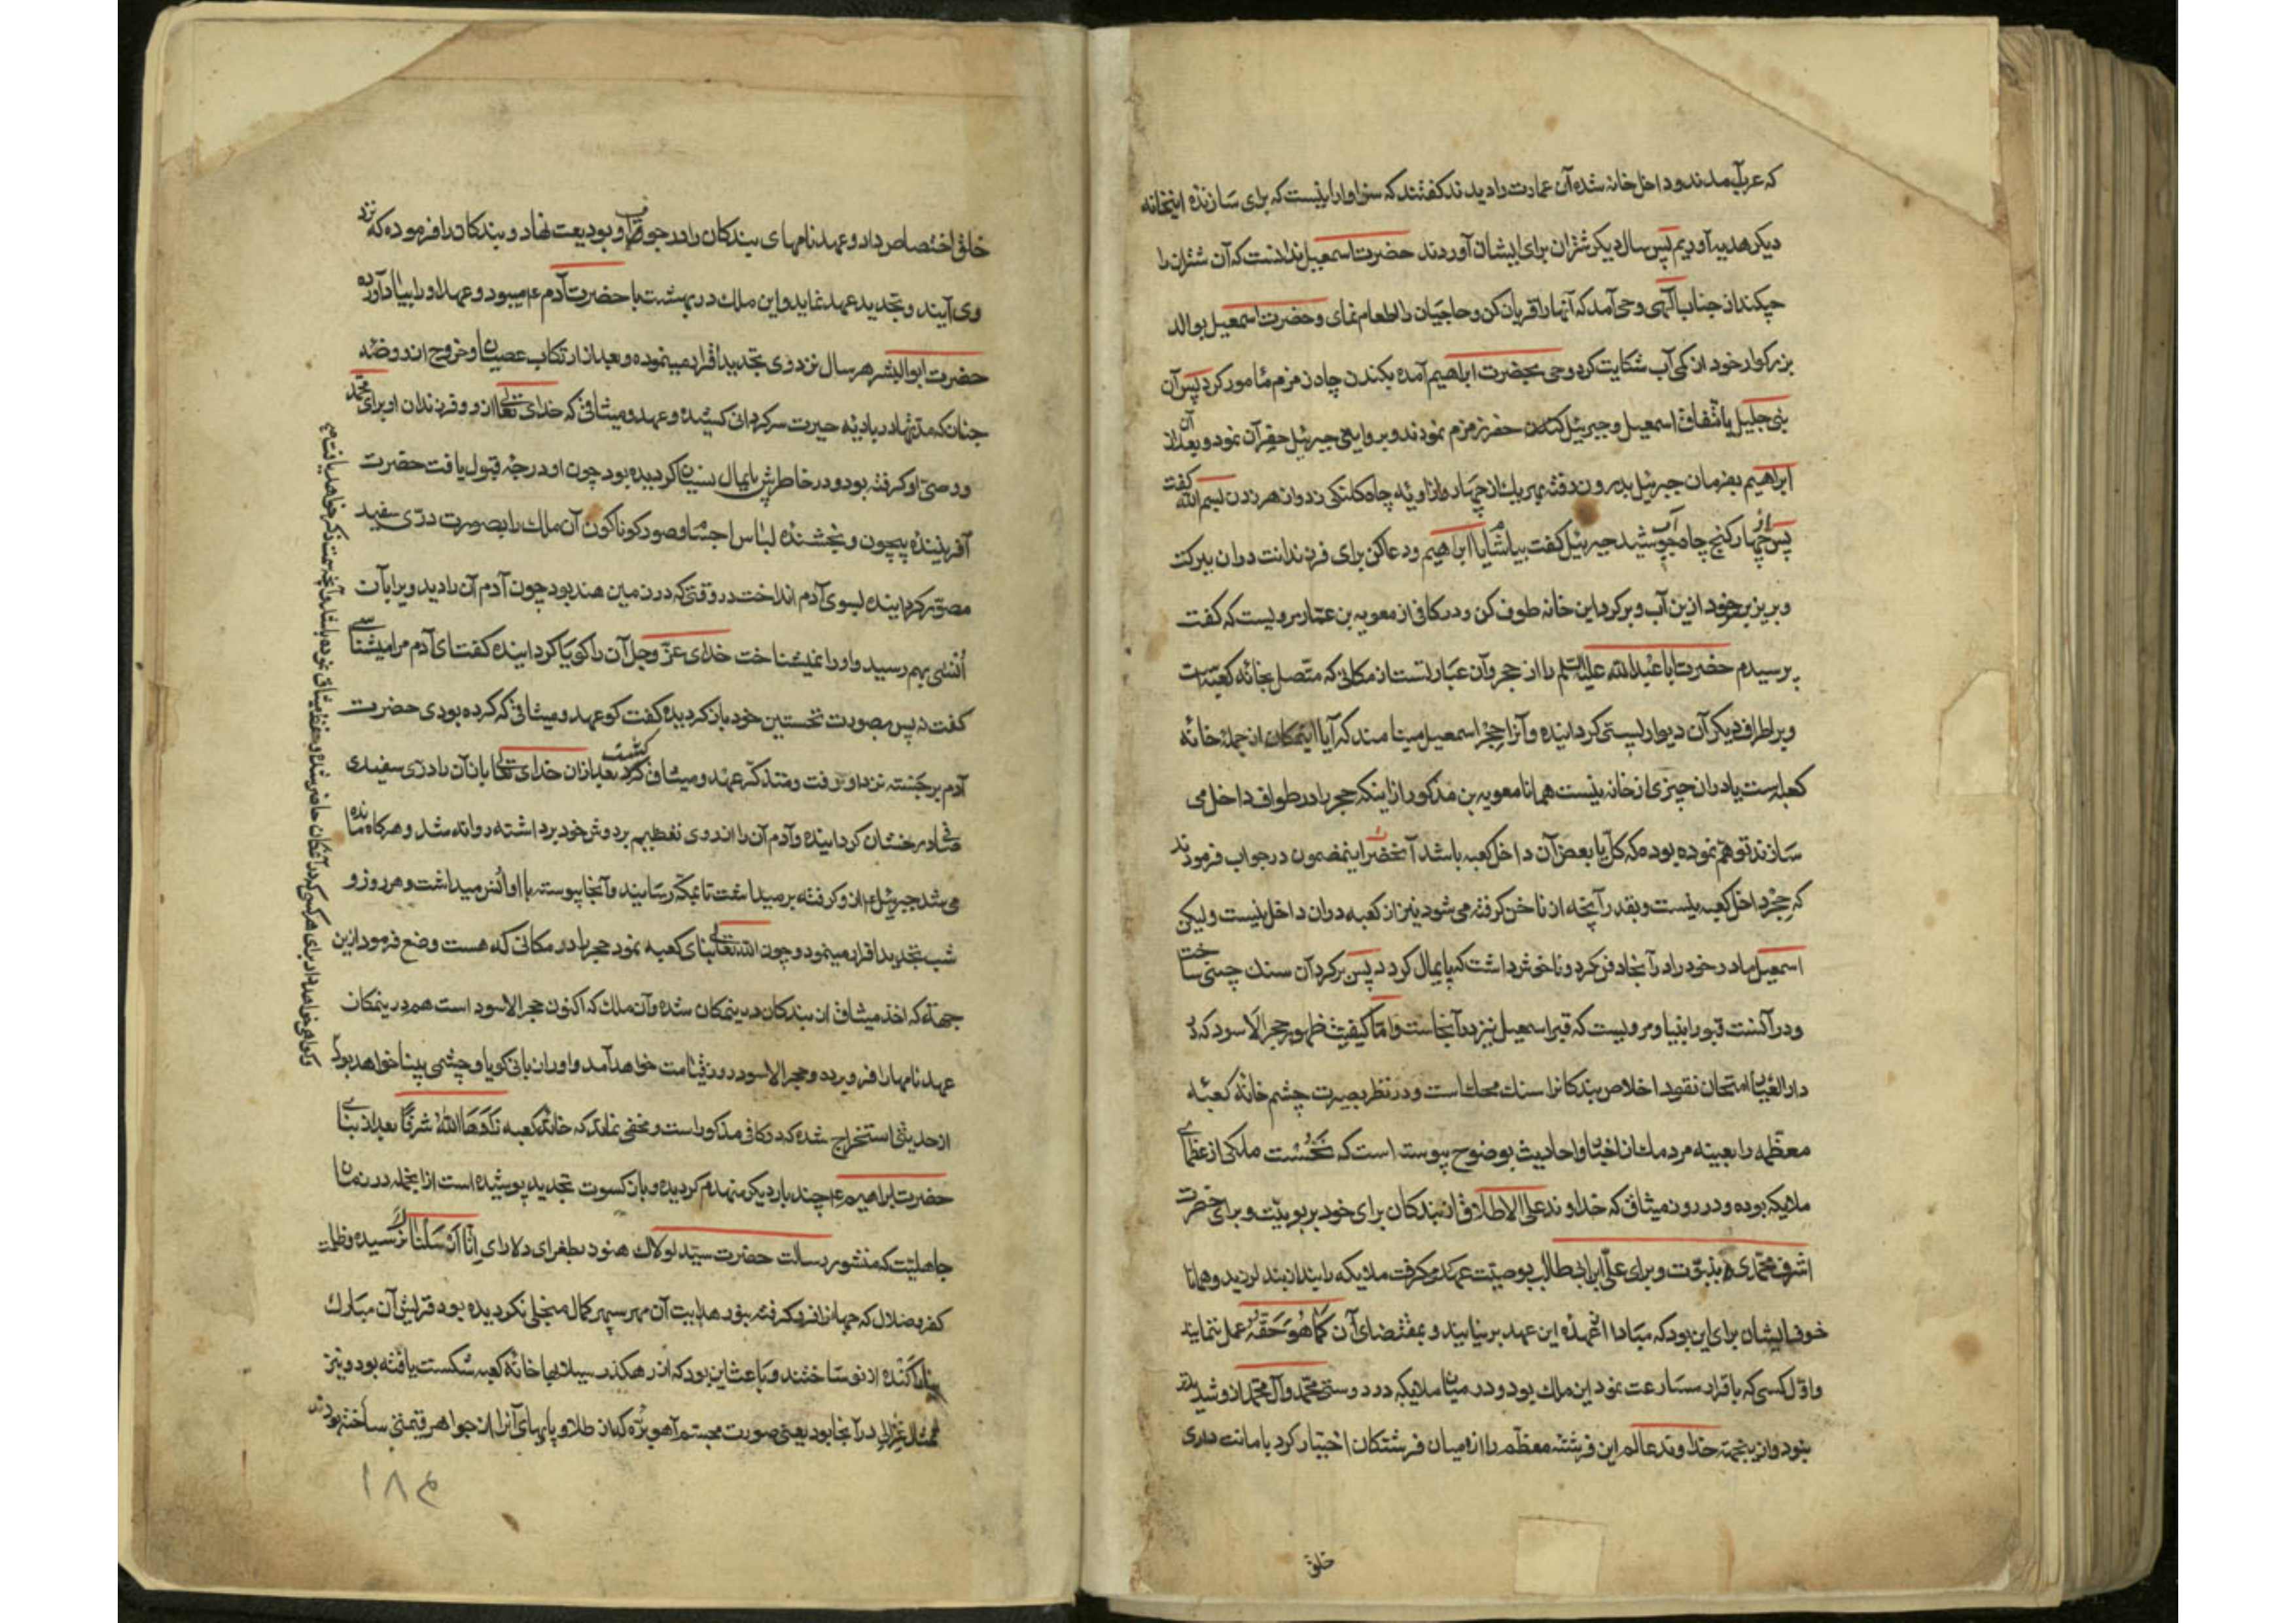 که عرب آمدند و داخل خانه شده آن عمارت را دیدند کفتند که سزاوار اینست که برای سازنده اینخانه
دیکر هدیه آوریم پس سال دیکر شتران برای ایشان آوردند حضرت اسمعیل ندانست که آن شتران را
چکند از جناب آلهی وحی آمد که آنها را قربان کن و حاجیان را اطعام نمای و حضرت اسمعیل بوالد
بزرکوار خود از کمی آب شکایت کرد وحی بحضرت ابراهیم آمده بکندن چاه زمزم مامور کرد پس آن
نبی جلیل باتفاق اسمعیل و جبرئیل حفر زمزم نمودند و بروایتی جبرئیل حفر آن نمود و بعد از آن
ابراهیم بفرمان جبرئیل بدرون رفته بهر یک از چهار زاویه چاه کلنکی زد و از هر زدن بسم الله کفت
پس از چهار کنج چاه آب جوشید جبرئیل کفت بیاشام یا ابراهیم و دعا کن برای فرزندانت دران ببرکت
و بریز بر خود ازین آب و بر کرد این خانه طوف کن و در کافی از معویه بن عمار مرویست که کفت
پرسیدم حضرت ابا عبدالله علیه السلم را از حجر و آن عبارتست از مکانی که متصل بخانه کعبه است
و بر اطراف دیکر آن دیوار پستی کردانیده و آنرا حجر اسمعیل مینامند که آیا اینمکان از جمله خانه
کعبه است یا دران چیزی از خانه نیست همانا معویه بن مذکور از اینکه حجر را در طواف داخل می
سازند توهم نموده بوده که کل یا بعض آن داخل کعبه باشد آنحضرت اینمضمون در جواب فرمودند
که حجر داخل کعبه نیست و بقدر آنچه از ناخن کرفته می شود نیز از کعبه دران داخل نیست ولیکن
اسمعیل مادر خود را در آنجا دفن کرد و ناخوش داشت که پایمال کردد پس بر کرد آن سنک چینی ساخت
و در آنست قبور انبیا و مرویست که قبر اسمعیل نیز در آنجاست و اما کیفیت ظهور حجر الاسود که در
دار العیار امتحان نقود اخلاص بندکانرا سنک محک است و در نظر بصیرت چشم خانه کعبه
معظمه را بعینه مردمک از اخبار و احادیث بوضوح پیوسته است که نخست ملکی از عظمای
ملایکه بوده و در روز میثاق که خداوند علی الاطلاق از بندکان برای خود بربوبیت و برای حضرت
اشرف محمدی بنبوت و برای علی ابن ابی طالب بوصیت عهد میکرفت ملایکه را بند از بند لرزید و همانا
خوف ایشان برای این بود که مبادا از عهده این عهد بر نیایند و بمقتضای آن کما هو حقه عمل ننمایند
و اول کسی که باقرار مسارعت نمود این ملک بود و در میان ملایکه در دوستی محمد و آل محمد ازو شدیدتر
نبود و ازینجهة خداوند عالم این فرشته معظم را از میان فرشتکان اختیار کرد بامانت داری
خلق
خلق اختصاص داد و عهدنامهای بندکان را در جوف او بودیعت نهاد و بندکان را فرموده که نزد
وی آیند و تجدید عهد نماید و این ملک در بهشت با حضرت آدم ع میبود و عهد او را بیاد آورده
حضرت ابوالبشر هر سال نزد وی تجدید اقرار مینموده و بعد از ارتکاب عصیان و خروج از روضه
جنان که مدتها در بادیه حیرت سرکردانی کشیده و عهد و میثاقی که خدای تعالی ازو و فرزندان او برای محمد
و وصی او کرفته بود و در خاطرش پایمال نسیان کردیده بود چون او درجه قبول یافت حضرت
آفریننده بیچون و بخشنده لباس اجسام و صور کوناکون آن ملک را بصورت دری سفید
مصور کردانیده بسوی آدم انداخت در وقتی که در زمین هند بود چون آدم آن را دید ویرا بآن
انسی بهم رسید و او را نمیشناخت خدای عز وجل آن را کویا کردانیده کفت ای آدم مرا میشناسی
کفت نه پس بصورت نخستین خود باز کردیده کفت کو عهد و میثاقی که کرده بودی حضرت
آدم برجسته نزد او رفت و متذکر عهد و میثاق کشت بعد ازان خدای تعالی باز آن را دری سفیدی
صاف درخشان کردانیده و آدم آن را از روی تعظیم بر دوش خود برداشته روانه شد و هرکاه مانده
می شد جبرئیل ع ازو کرفته برمیداشت تا بمکه رسانیدند و آنجا پیوسته با او انس میداشت و هر روز و
شب تجدید اقرار مینمود و چون الله تعالی بنای کعبه نمود حجر را در مکانی که هست وضع فرمود ازین
جهة که اخذ میثاق از بندکان درینمکان شده و آن ملک که اکنون حجر الاسود است هم درینمکان
عهدنامها را فرو برده و حجر الاسود روز قیامت خواهد آمد و او را زبانی کویا و چشمی بینا خواهد بود
و کواهی خواهد داد برای هر کس که در آنمکان حاضر شده و حفظ میثاق نموده باشد و آنچه سمت ذکر خواهد یافت
از حدیثی استخراج شده که در کافی مذکور است و مخفی نماند که خانه کعبه زادها الله شرفا بعد از بنای
حضرت ابراهیم ع چند بار دیکر منهدم کردیده و باز کسوت تجدید پوشیده است از انجمله در زمان
جاهلیت که منشور رسالت حضرت سید لولاک هنوز بطغرای دلارای انا ارسلناک نرسیده و ظلمت
کفر و ضلال که جهانرا فرو کرفته بنور هدایت آن مهر سپهر کمال منجلی نکردیده بود قریش آن مبارک
بنا را کنده از نو ساختند و باعث این بود که از رهکذر سیلابها خانه کعبه شکست یافته بود و نیز
تمثال غزالی در آنجا بود یعنی صورت مجسم آهو بره که از طلا و پایهای آنرا از جواهر قیمتی ساخته بودند
۱۸۴